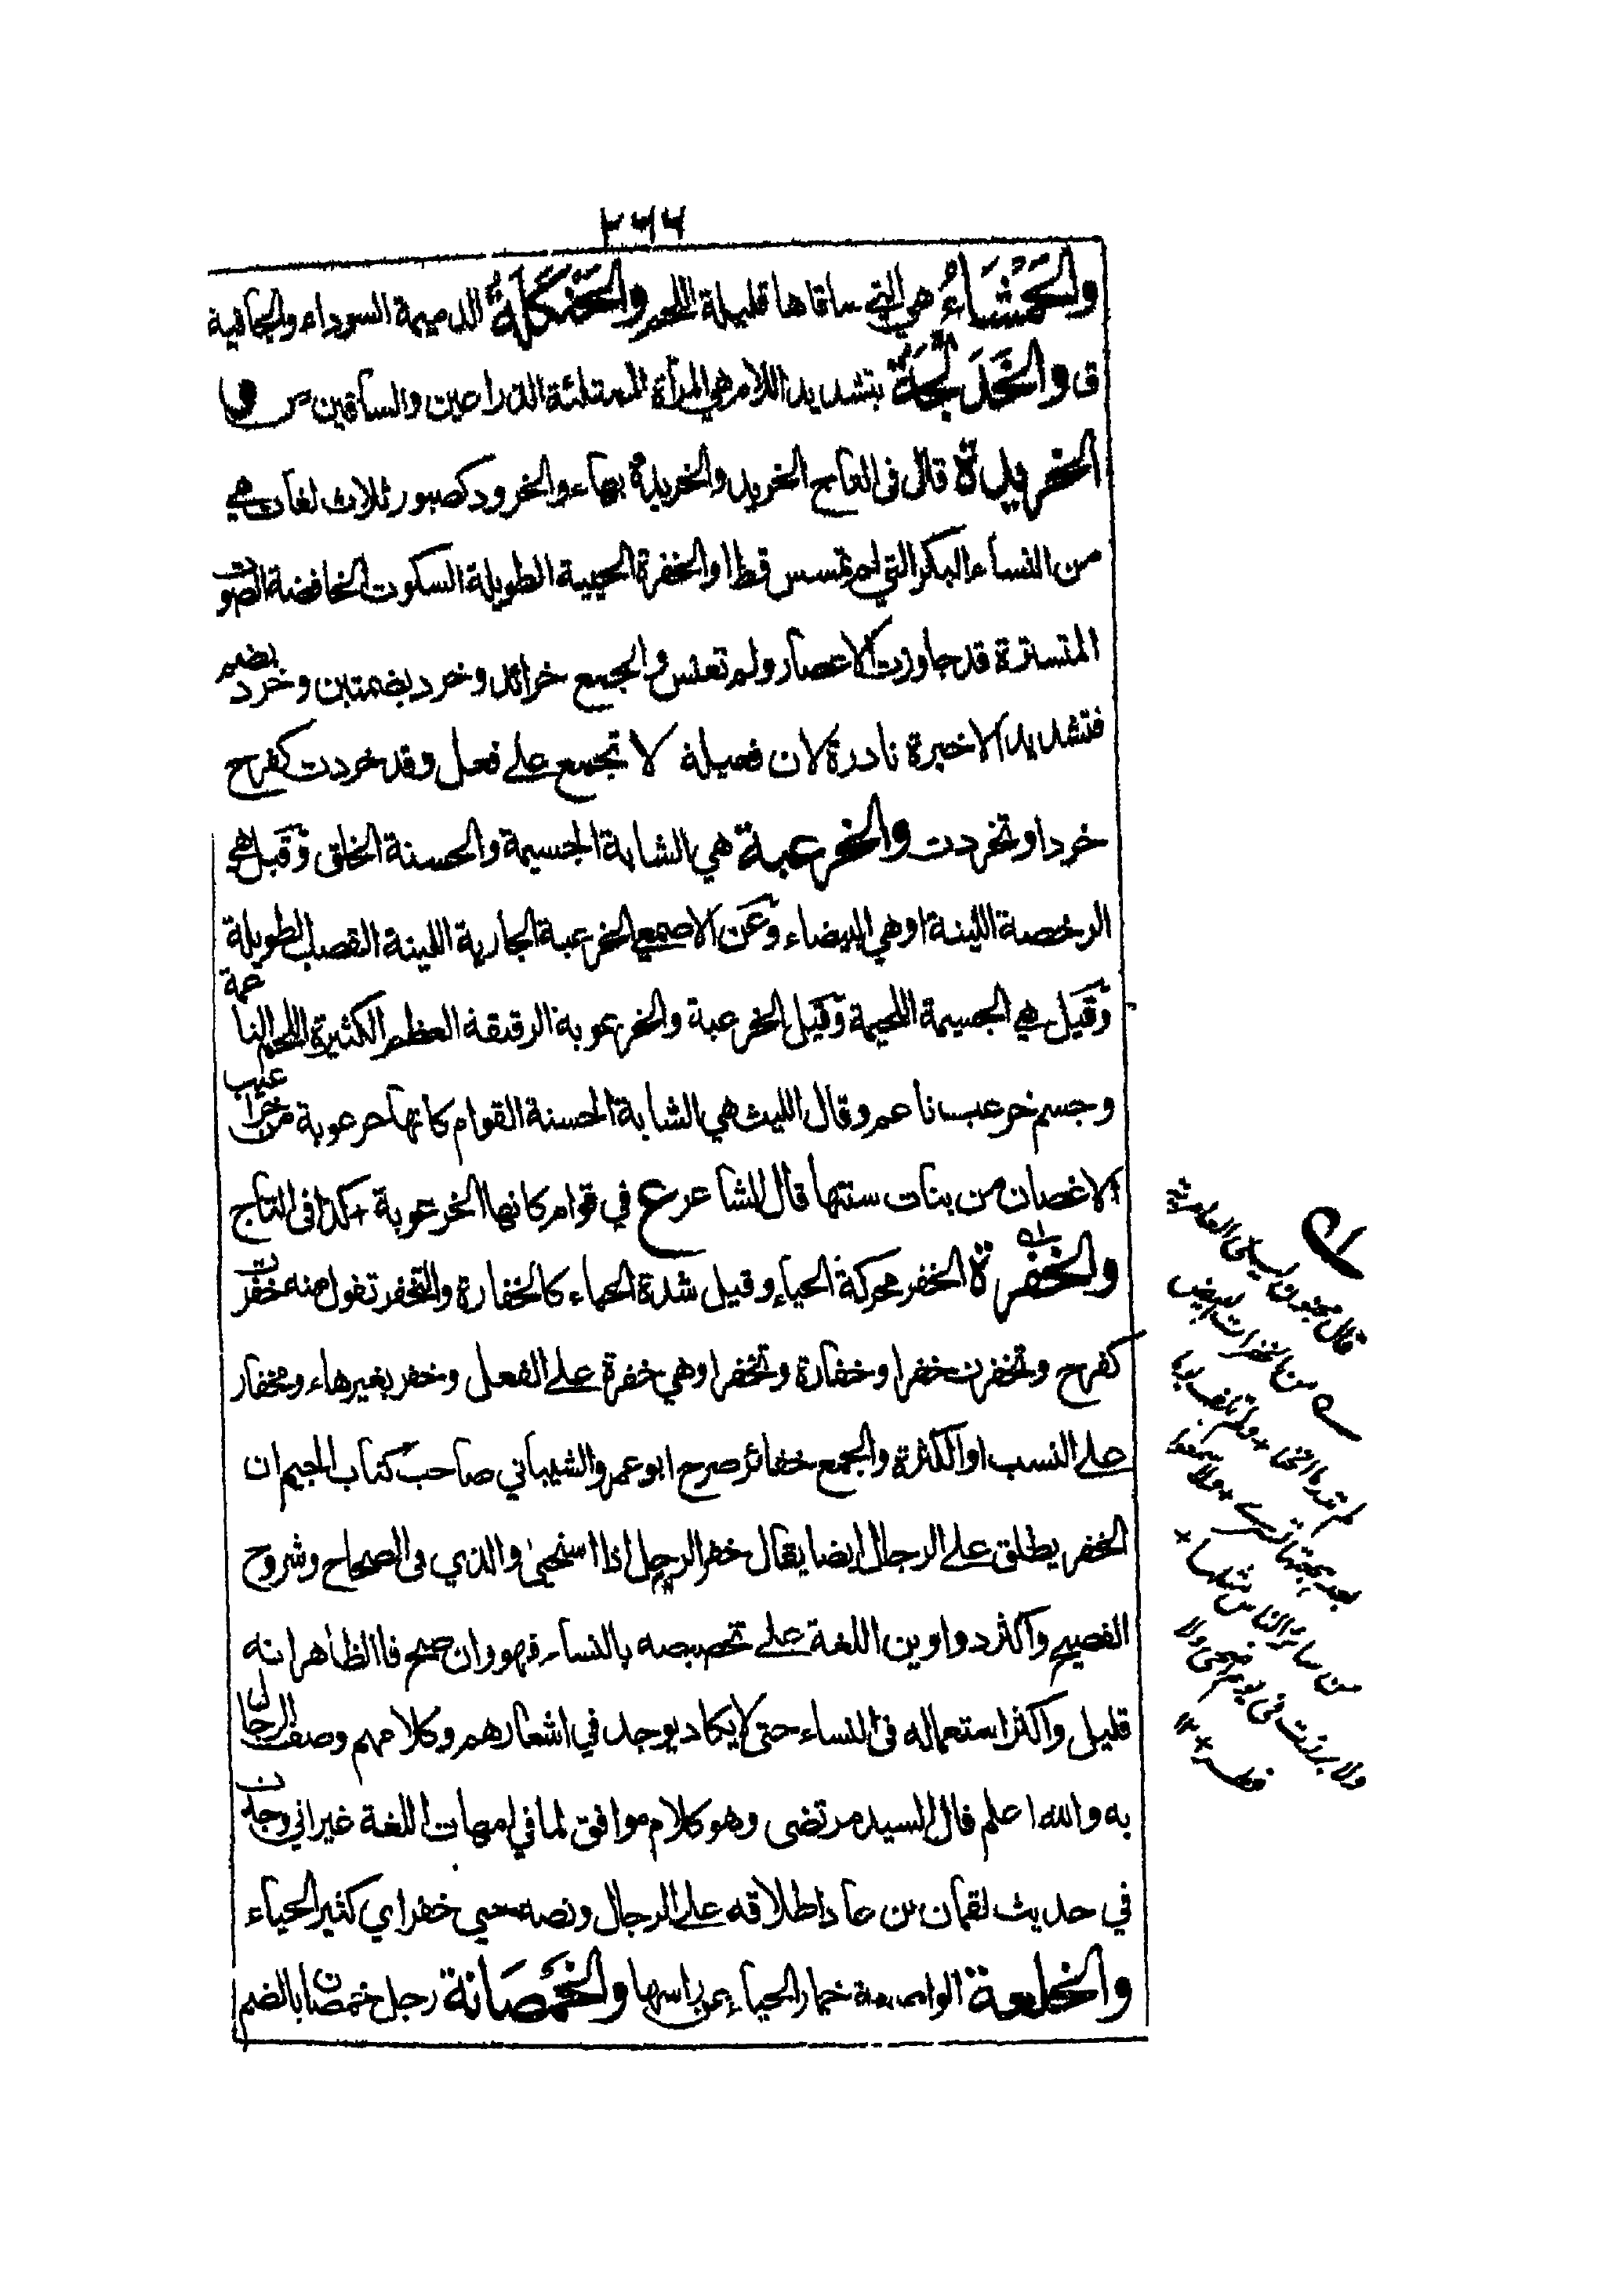 ٢٦٦
والحَمْشَاءُ هي التي ساقاها قليلة اللحم والحَنْكَلَةُ الدميمة السوداء والجافية
ق والخَدَلَّجَةُ بتشديد اللام هي المرأة الممتلئة الذراعين والساقين س و
الخريدة قال فى التاج الخريد والخريدة بهاء والخرود كصبور ثلاث لغات هي
من النساء البكر التي لم تمسس قط او الخفرة الحيية الطويلة السكوت الخافضة الصوت
المتسترة قد جاوزت الاعصار ولم تعنس والجمع خرائد وخرد بضمتين وخرد بضم
فتشديد الاخيرة نادرة لان فعيلة لا تجمع على فعل وقد خردت كفرح
خردا وتخردت والخرعبة هي الشابة الجسيمة والحسنة الخلق وقيل هي
الرخصة اللينة او هي البيضاء وعن الاصمعي الخرعبة الجارية اللينة القصب الطويلة
وقيل هي الجسيمة اللحيمة وقيل الخرعبة والخرعوبة الرقيقة العظم الكثيرة اللحم الناعمة
وجسم خرعب ناعم وقال الليث هي الشابة الحسنة القوام كانها خرعوبة من خراعيب
الاغصان من بنات سنتها قال الشاعر ع في قوام كانها الخرعوبة + كذا فى التاج
والخفرة الخفر محركة الحياء وقيل شدة الحياء كالخفارة والتخفر تقول منه خفرت
كفرح وتخفرت خفرا وخفارة وتخفرا وهي خفرة على الفعل وخفر بغير هاء ومخفار
على النسب او الكثرة والجمع خفائر صرح ابو عمرو الشيباني صاحب كتاب الجيم ان
الخفر يطلق على الرجال ايضا يقال خفر الرجل اذا استحيى والذي فى الصحاح وشروح
الفصيح واكثر دواوين اللغة على تخصيصه بالنساء فهو وان صح فالظاهر انه
قليل واكثر استعماله فى النساء حتى لا يكاد يوجد في اشعارهم وكلامهم وصف الرجال
به والله اعلم قال السيد مرتضى وهو كلام موافق لما في امهات اللغة غير اني وجدت
في حديث لقمان بن عاد اطلاقه على الرجال ونصه حيي خفر اي كثير الحياء
والخليعة الواضعة خمار الحياء عن راسها والخُمْصَانَة رجل خمصان بالضم
قال مجنون ليلى العامرية
من الخفرات البيض
لم تدر ما الخنا + ولم تلف يوما
بعد هجعتها تسرى + ولا سمعوا
من سائر الناس مثلها +
ولا برزت في يوم اضحى ولا
فطر +